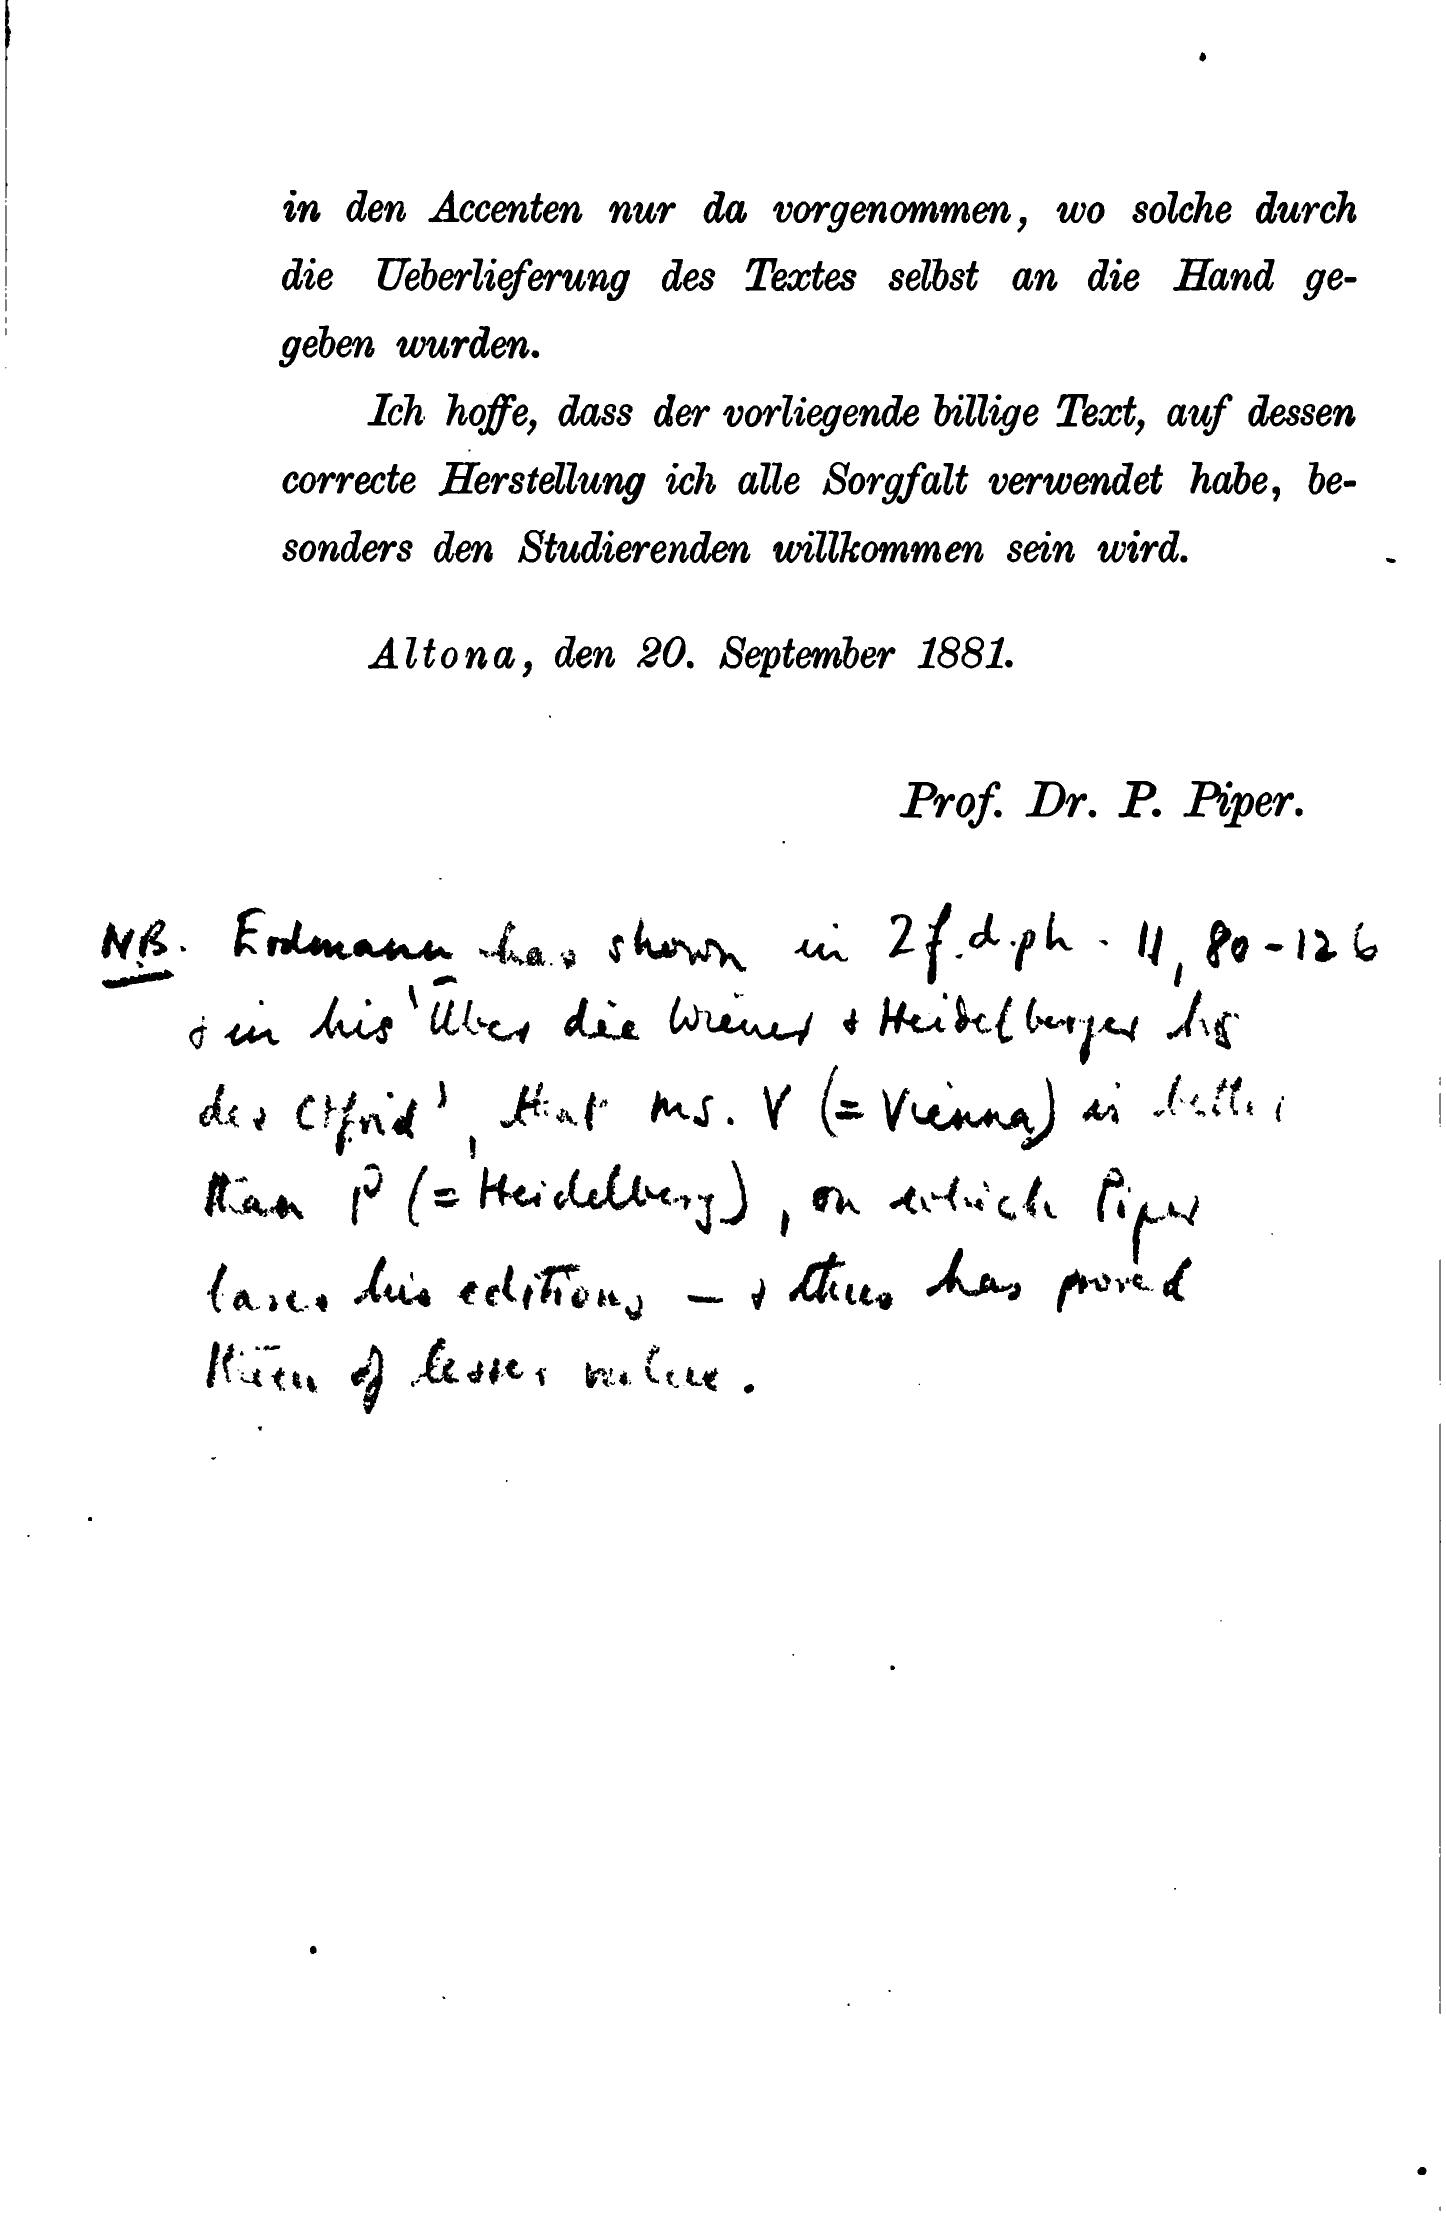 in den Accenten nur da vorgenommen, wo solche durch
die Ueberlieferung des Textes selbst an die Hand ge-
geben wurden.
Ich hoffe, dass der vorliegende billige Text, auf dessen
correcte Herstellung ich alle Sorgfalt verwendet habe, be-
sonders den Studierenden willkommen sein wird.
Altona, den 20. September 1881.
Prof. Dr. P. Piper.
NB. Erdmann has shown in Zf.d.ph. 11, 80-126
& in his 'Über die Wiener & Heidelberger hs
des Otfrid', that MS. V (= Vienna) is better
than P (= Heidelberg), on which Piper
bases his editions — & thus has proved
them of lesser value.